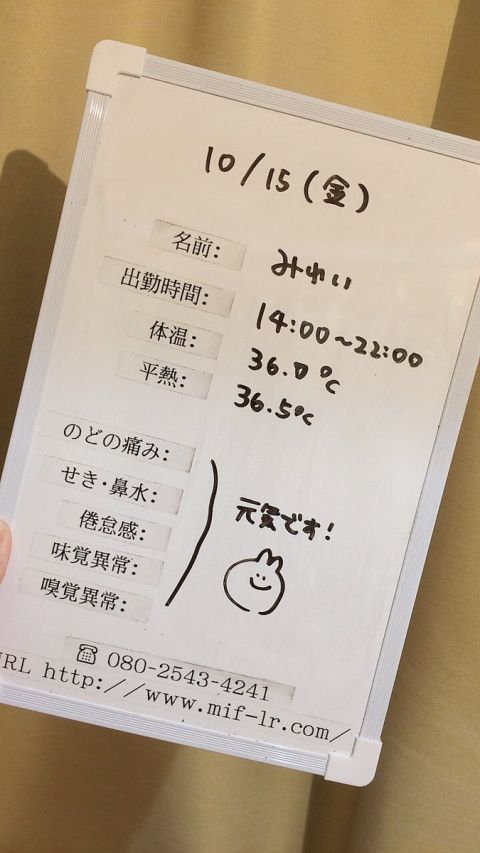 10/15(金)
名前: みれい
出勤時間: 14:00~22:00
体温: 36.0℃
平熱: 36.5℃
のどの痛み:
せき・鼻水:
倦怠感:
味覚異常:
嗅覚異常:
元気です!
☎ 080-2543-4241
URL http://www.mif-lr.com/